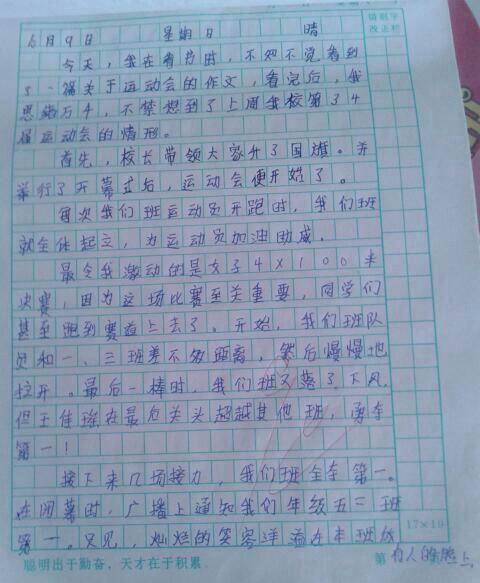 错别字
改正栏
6月9日 星期日 晴
今天，我在看书时，不知不觉看到
了一篇关于运动会的作文，看完后，我
思绪万千，不禁想到了上周我校第34
届运动会的情形。
首先，校长带领大家升了国旗。并
举行了开幕式后，运动会便开始了。
每次我们班运动员开跑时，我们班
就全体起立，为运动员加油助威。
最令我激动的是女子4×100米
决赛，因为这场比赛至关重要，同学们
甚至跑到赛道上去了。开始，我们班队
员和一、三班差不多距离，然后慢慢地
拉开。最后一棒时，我们班又落了下风，
但王佳 在最后关头超越其他班，勇夺
第一！
接下来几场接力，我们班全夺第一。
在闭幕时，广播上通知我们年级五三班
第一。只见，灿烂的笑容洋溢在本班级
17×19
聪明出于勤奋，天才在于积累 第 有人的脸上